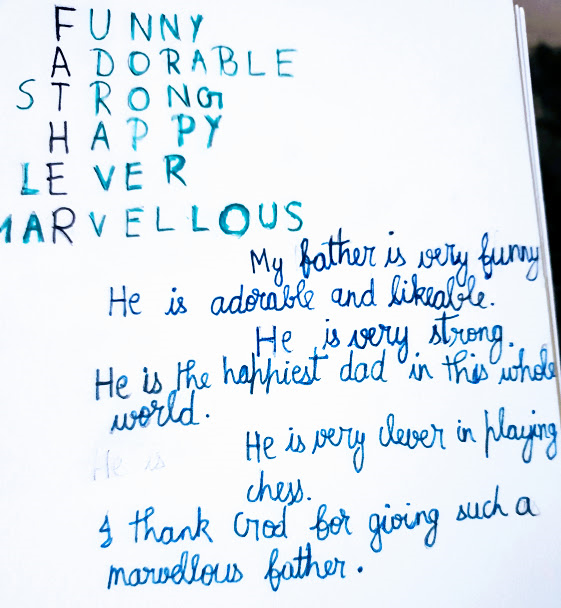 FUNNY
ADORABLE
STRONG
HAPPY
LEVER
MARVELLOUS
My father is very funny
He is adorable and likeable.
He is very strong.
He is the happiest dad in this whole
world.
He is very clever in playing
He is
chess.
I thank God for giving such a
marvellous father.